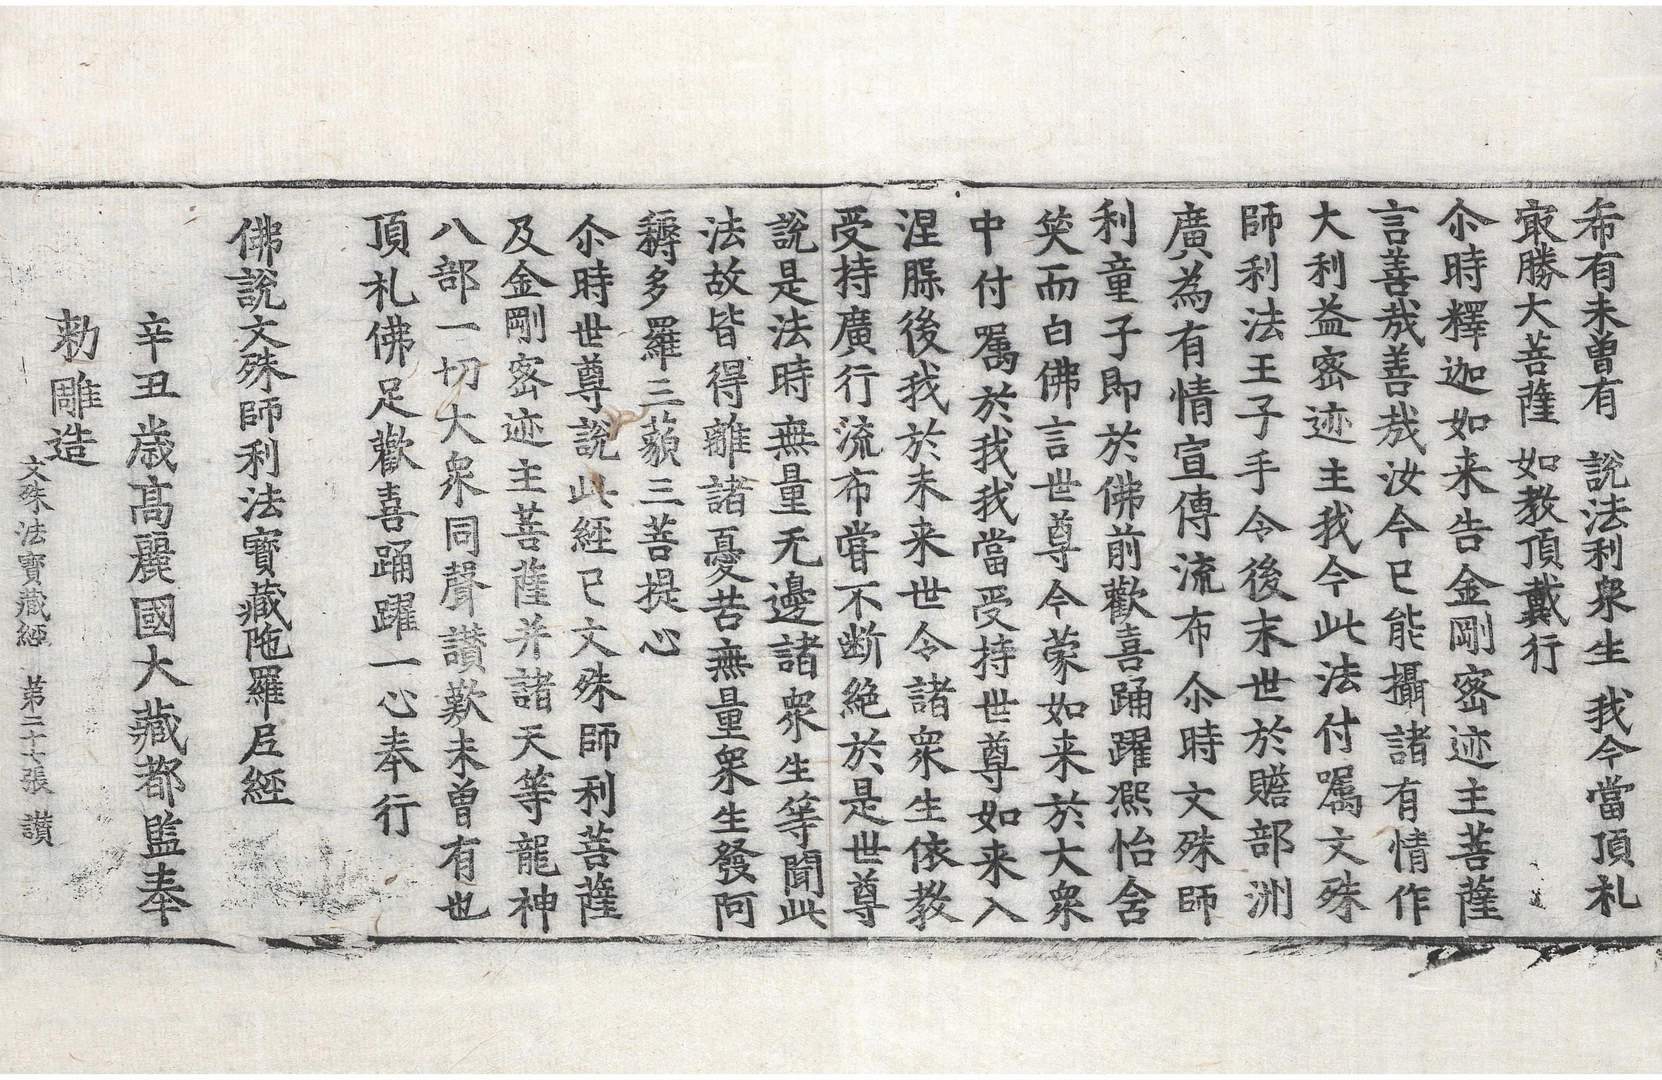 希有未曾有 說法利衆生 我今當頂礼
㝡勝大菩薩 如教頂戴行
尒時釋迦如来告金剛密迹主菩薩
言善哉善哉汝今已能攝諸有情作
大利益密迹主我今此法付囑文殊
師利法王子手令後末世於贍部洲
廣為有情宣傳流布尒時文殊師
利童子即於佛前歡喜踊躍凞怡含
笑而白佛言世尊今蒙如来於大衆
中付囑於我我當受持世尊如来入
涅槃後我於未来世令諸衆生依教
受持廣行流布甞不断絶於是世尊
說是法時無量无邊諸衆生等聞此
法故皆得離諸憂苦無量衆生發阿
耨多羅三藐三菩提心
尒時世尊說此經已文殊師利菩薩
及金剛密迹主菩薩并諸天等龍神
八部一切大衆同聲讃歎未曾有也
頂礼佛足歡喜踊躍一心奉行
佛說文殊師利法寶藏陁羅尼經
辛丑歲高麗國大藏都監奉
勑雕造
文殊法寶藏經 第二十七張 讃